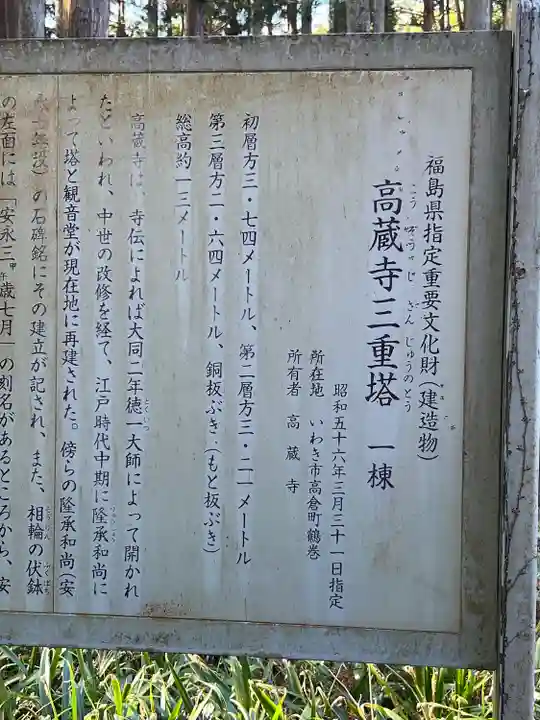 福島県指定重要文化財(建造物)
高蔵寺三重塔 一棟
こうぞうじ さんじゅうのとう
昭和五十六年三月三十一日指定
所在地 いわき市高倉町鶴巻
所有者 高蔵寺
初層方三・七四メートル、第二層方三・二一メートル
第三層方二・六四メートル、銅板ぶき(もと板ぶき)
総高約一三メートル
高蔵寺は、寺伝によれば大同二年徳一大師によって開かれ
とくいつ
たといわれ、中世の改修を経て、江戸時代中期に隆承和尚に
よって塔と観音堂が現在地に再建された。傍らの隆承和尚(安
永十年没)の石碑銘にその建立が記され、また、相輪の伏鉢
の左面には「安永三年歳七月」の刻名があるところから、安